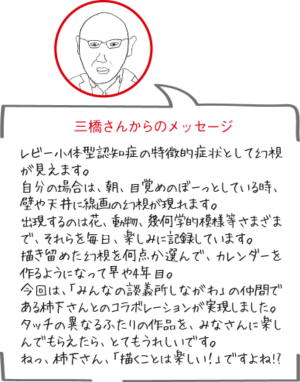 三橋さんからのメッセージ
レビー小体型認知症の特徴的症状として幻視
が見えます。
自分の場合は、朝、目覚めのぼーっとしている時、
壁や天井に線画の幻視が現れます。
出現するのは花、動物、幾何学的模様等さまざま
で、それらを毎日、楽しみに記録しています。
描き留めた幻視を何点か選んで、カレンダーを
作るようになって早や4年目。
今回は、「みんなの談義所しながわ」の仲間で
ある柿下さんとのコラボレーションが実現しました。
タッチの異なるふたりの作品を、みなさんに楽し
んでもらえたら、とてもうれしいです。
ねっ、柿下さん、「描くことは楽しい!」ですよね!?